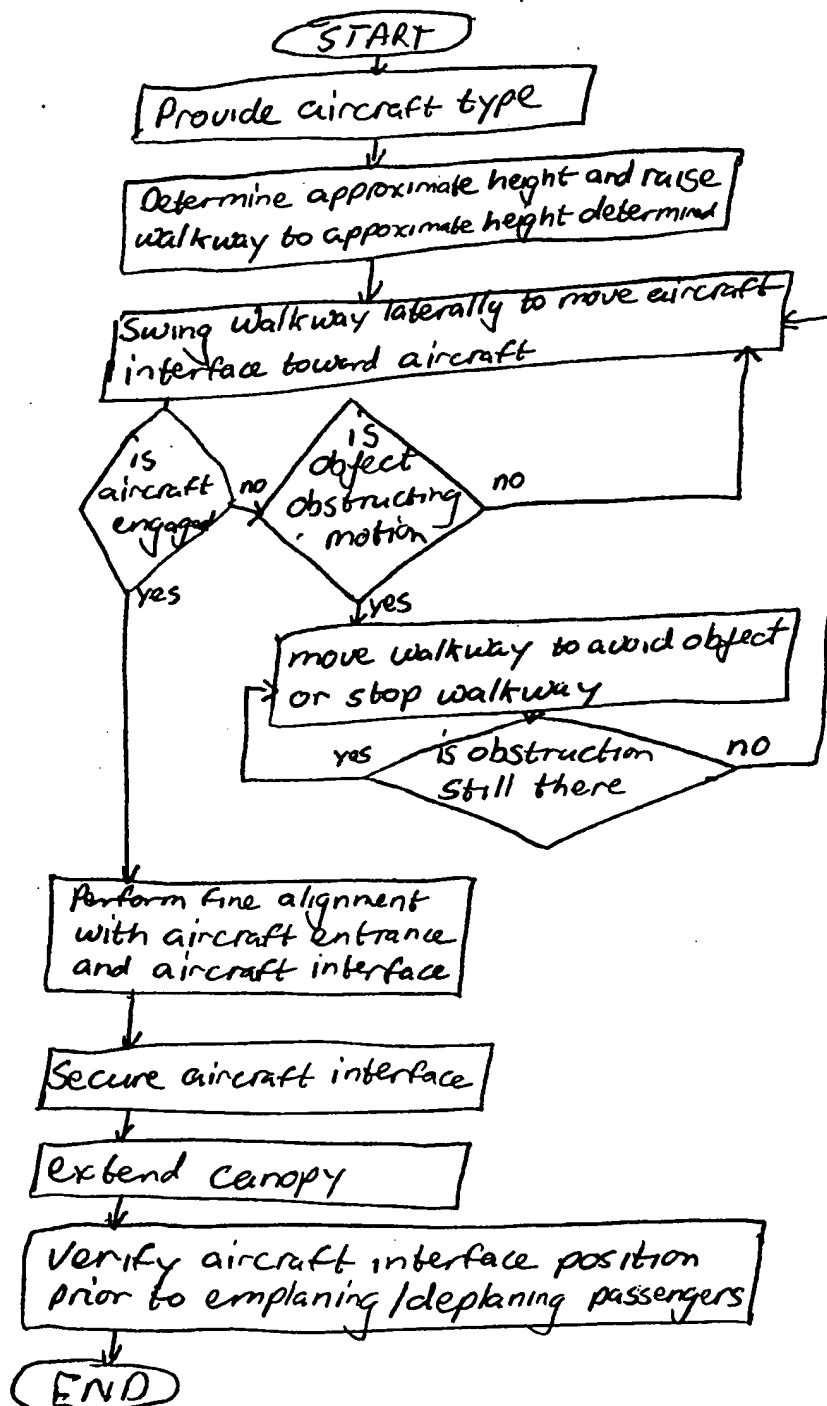 START
Provide aircraft type
Determine approximate height and raise
walkway to appoximate height determined
Swing walkway laterally to move aircraft
interface toward aircraft
is
aircraft
engaged
no
yes
is
object
obstructing
motion
no
yes
move walkway to avoid object
or stop walkway
yes
is obstruction
still there
no
Perform fine alignment
with aircraft entrance
and aircraft interface
Secure aircraft interface
extend canopy
Verify aircraft interface position
prior to emplaning/deplaning passengers
END